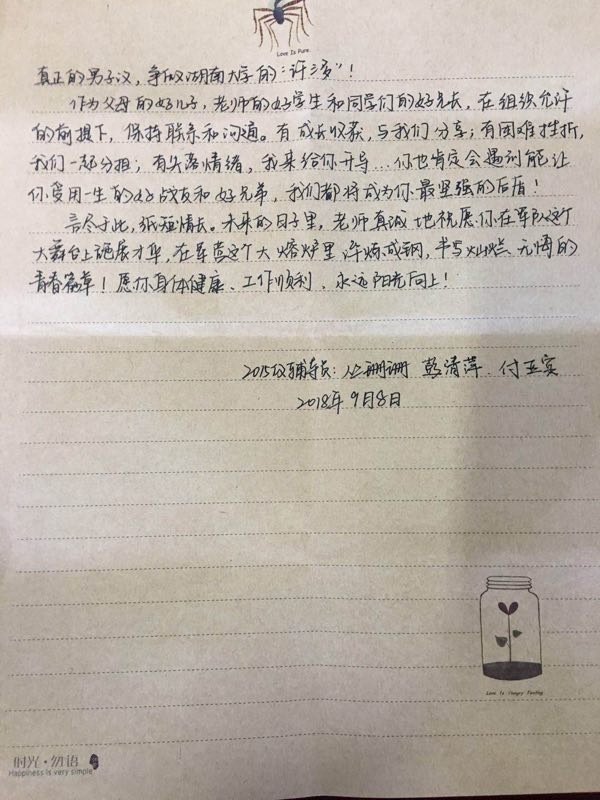 Love Is Pure.
真正的男子汉，争做湖南大学的“许三多”！
作为父母的好儿子，老师的好学生和同学们的好兄长，在组织允许
的前提下，保持联系和沟通。有成长收获，与我们分享；有困难挫折，
我们一起分担；有失落情绪，我来给你开导…你也肯定会遇到能让
你受用一生的好战友和好兄弟，我们都将成为你最坚强的后盾！
言尽于此，纸短情长。未来的日子里，老师真诚地祝愿你在军队这个
大舞台上施展才华，在军营这个大熔炉里淬炼成钢，书写灿烂、无悔的
青春篇章！愿你身体健康、工作顺利、永远阳光向上！
2015级辅导员： 珊珊 彭清萍 付玉实
2018年9月8日
Love Is Hungry Feeling
时光·勿语
Happiness is very simple